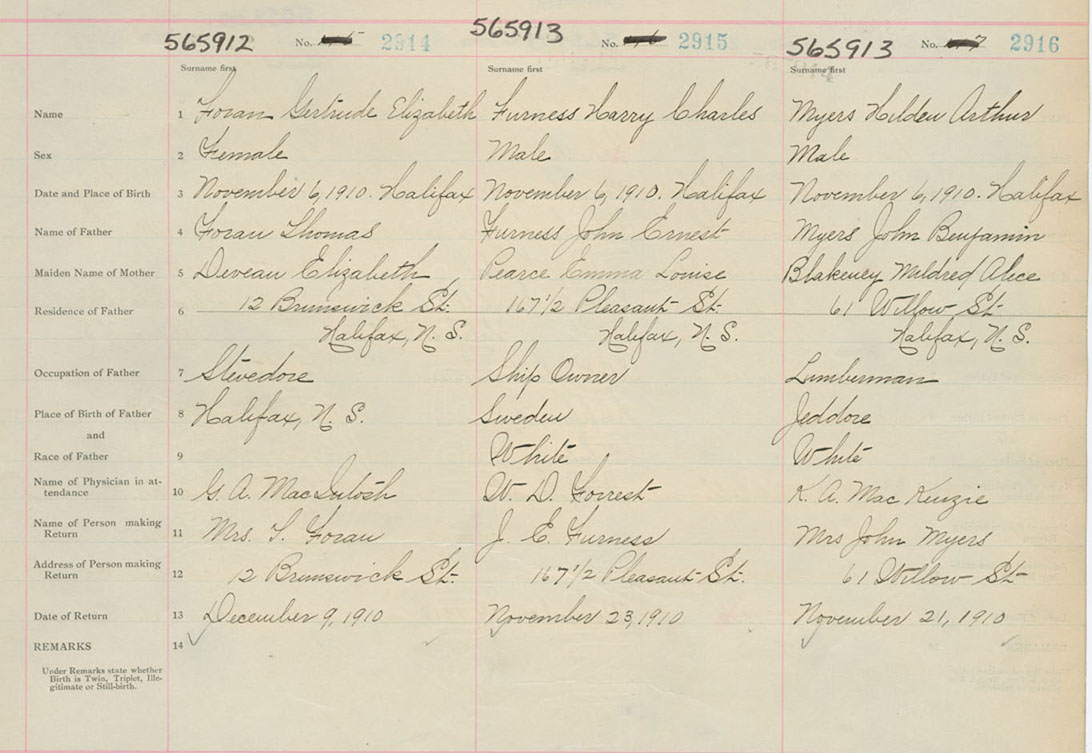 565912 No. 2914 565913 No. 2915 565913 No. 2916
Surname first Surname first Surname first
Name 1 Foran Gertrude Elizabeth Furness Harry Charles Myers Hilden Arthur
Sex 2 Female Male Male
Date and Place of Birth 3 November 6, 1910. Halifax November 6, 1910. Halifax November 6, 1910. Halifax
Name of Father 4 Foran Thomas Furness John Ernest Myers John Benjamin
Maiden Name of Mother 5 Deveau Elizabeth Pearce Emma Louise Blakeney Mildred Alice
Residence of Father 6 12 Brunswick St. 167 1/2 Pleasant St. 61 Willow St.
Halifax, N. S. Halifax, N. S. Halifax, N. S.
Occupation of Father 7 Stevedore Ship Owner Lumberman
Place of Birth of Father 8 Halifax, N. S. Sweden Jeddore
and
Race of Father 9 White White
Name of Physician in at-
tendance 10 G. A. MacIntosh W. D. Forrest K. A. Mac Kenzie
Name of Person making
Return 11 Mrs. T. Foran J. E. Furness Mrs John Myers
Address of Person making
Return 12 12 Brunswick St. 167 1/2 Pleasant St. 61 Willow St
Date of Return 13 December 9, 1910 November 23, 1910 November 21, 1910
REMARKS 14
Under Remarks state whether
Birth is Twin, Triplet, Ille-
gitimate or Still-birth.